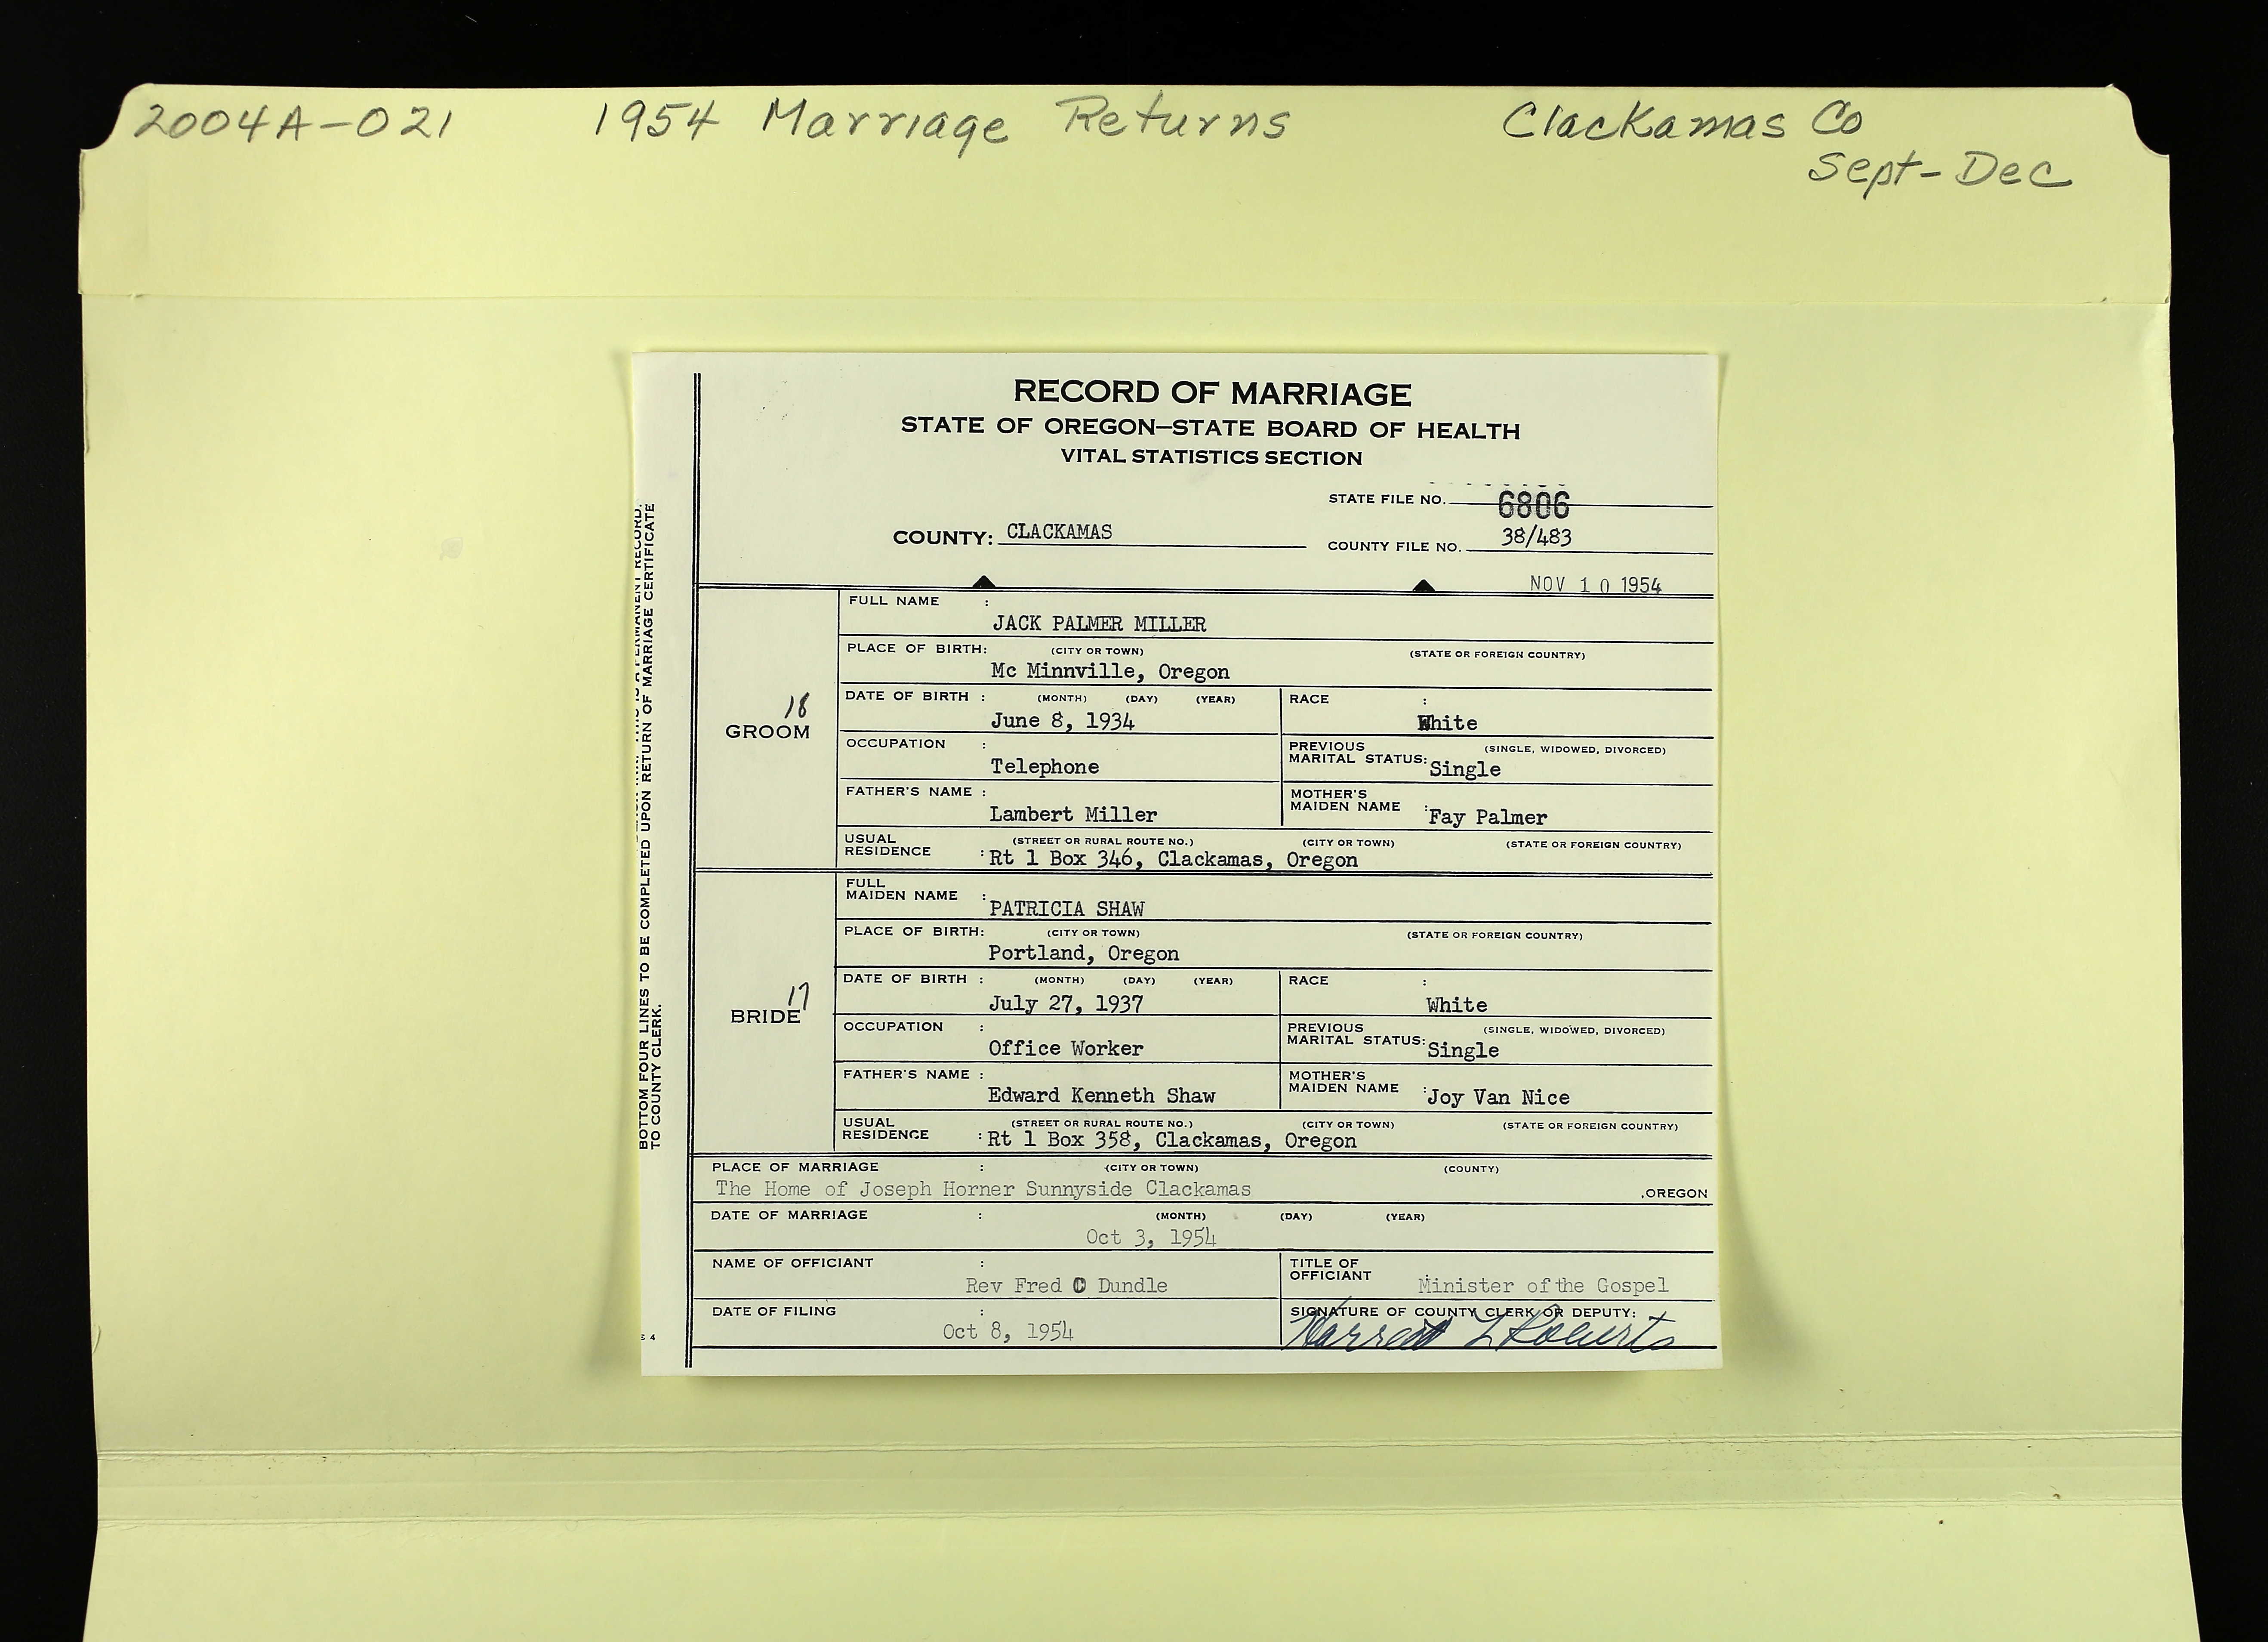 2004A-021 1954 Marriage Returns Clackamas Co
Sept-Dec
RECORD OF MARRIAGE
STATE OF OREGON—STATE BOARD OF HEALTH
VITAL STATISTICS SECTION
STATE FILE NO. 6806
COUNTY: CLACKAMAS
COUNTY FILE NO. 38/483
NOV 10 1954
18
GROOM
FULL NAME :
JACK PALMER MILLER
PLACE OF BIRTH: (CITY OR TOWN) (STATE OR FOREIGN COUNTRY)
Mc Minnville, Oregon
DATE OF BIRTH : (MONTH) (DAY) (YEAR) RACE :
June 8, 1934 White
OCCUPATION : PREVIOUS (SINGLE, WIDOWED, DIVORCED)
Telephone MARITAL STATUS: Single
FATHER'S NAME : MOTHER'S
Lambert Miller MAIDEN NAME : Fay Palmer
USUAL (STREET OR RURAL ROUTE NO.) (CITY OR TOWN) (STATE OR FOREIGN COUNTRY)
RESIDENCE : Rt 1 Box 346, Clackamas, Oregon
17
BRIDE
FULL
MAIDEN NAME : PATRICIA SHAW
PLACE OF BIRTH: (CITY OR TOWN) (STATE OR FOREIGN COUNTRY)
Portland, Oregon
DATE OF BIRTH : (MONTH) (DAY) (YEAR) RACE :
July 27, 1937 White
OCCUPATION : PREVIOUS (SINGLE, WIDOWED, DIVORCED)
Office Worker MARITAL STATUS: Single
FATHER'S NAME : MOTHER'S
Edward Kenneth Shaw MAIDEN NAME : Joy Van Nice
USUAL (STREET OR RURAL ROUTE NO.) (CITY OR TOWN) (STATE OR FOREIGN COUNTRY)
RESIDENCE : Rt 1 Box 358, Clackamas, Oregon
PLACE OF MARRIAGE : (CITY OR TOWN) (COUNTY)
The Home of Joseph Horner Sunnyside Clackamas ,OREGON
DATE OF MARRIAGE : (MONTH) (DAY) (YEAR)
Oct 3, 1954
NAME OF OFFICIANT : TITLE OF
Rev Fred C Dundle OFFICIANT : Minister of the Gospel
DATE OF FILING : SIGNATURE OF COUNTY CLERK OR DEPUTY:
Oct 8, 1954 L Roberts
S 4
A PERMANENT RECORD.
BOTTOM FOUR LINES TO BE COMPLETED UPON RETURN OF MARRIAGE CERTIFICATE
TO COUNTY CLERK.